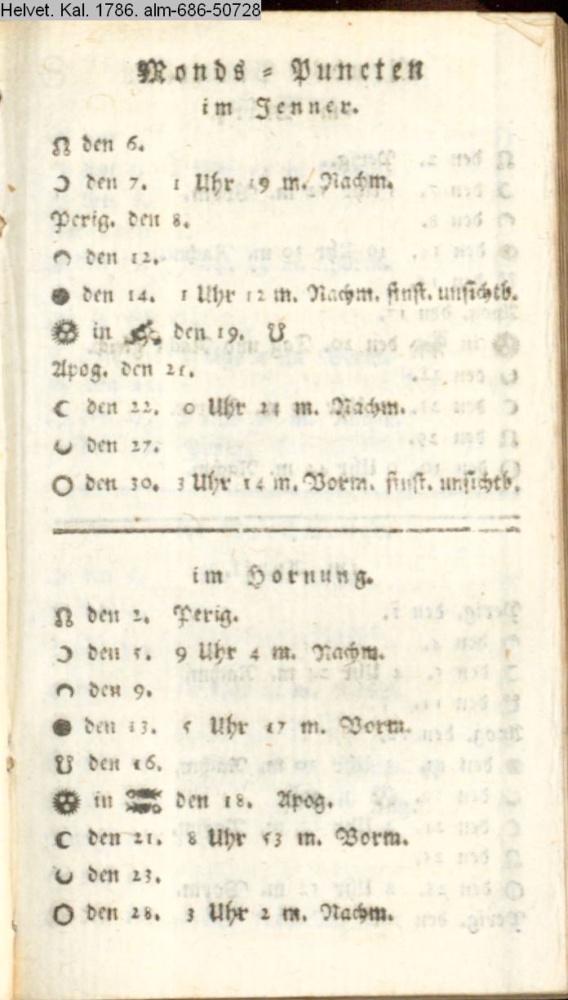 Helvet. Kal. 1786. alm-686-50728
Monds = Puncten
im Jenner.
☊ den 6.
☽ den 7. 1 Uhr 19 m. Nachm.
Perig. den 8.
⌒ den 12.
● den 14. 1 Uhr 12 m. Nachm. finst. unsichtb.
in den 19. ☋
Apog. den 21.
☾ den 22. 0 Uhr 21 m. Nachm.
◡ den 27.
○ den 30. 3 Uhr 14 m. Vorm. finst. unsichtb.
im Hornung.
☊ den 2. Perig.
☽ den 5. 9 Uhr 4 m. Nachm.
⌒ den 9.
● den 13. 5 Uhr 47 m. Vorm.
☋ den 16.
in den 18. Apog.
☾ den 21. 8 Uhr 53 m. Vorm.
◡ den 23.
○ den 28. 3 Uhr 2 m. Nachm.